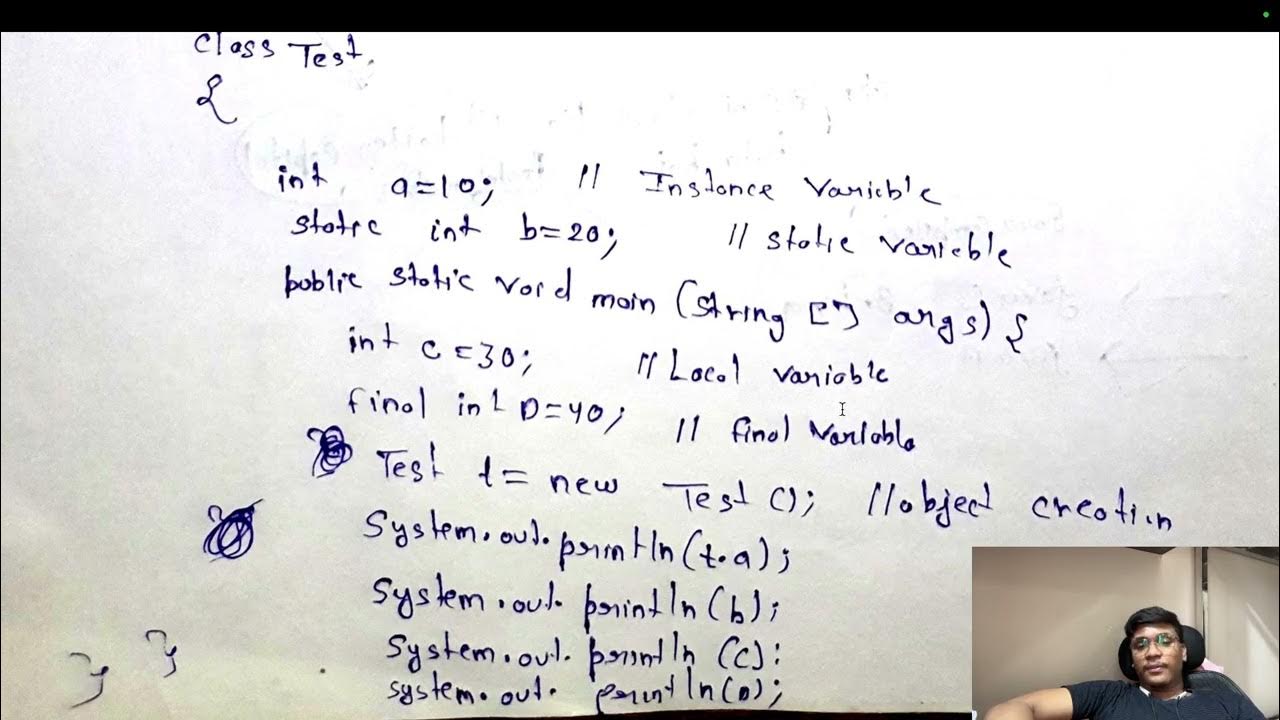 class Test
{
int a=10; // Instance variable
static int b=20; // static variable
public static void main (string [] args) {
int c=30; // Local variable
final int D=40; // final variable
Test t= new Test(); //object creation
System.out.println(t.a);
System.out.println(b);
System.out.println(c):
system.out.println(D);
} }